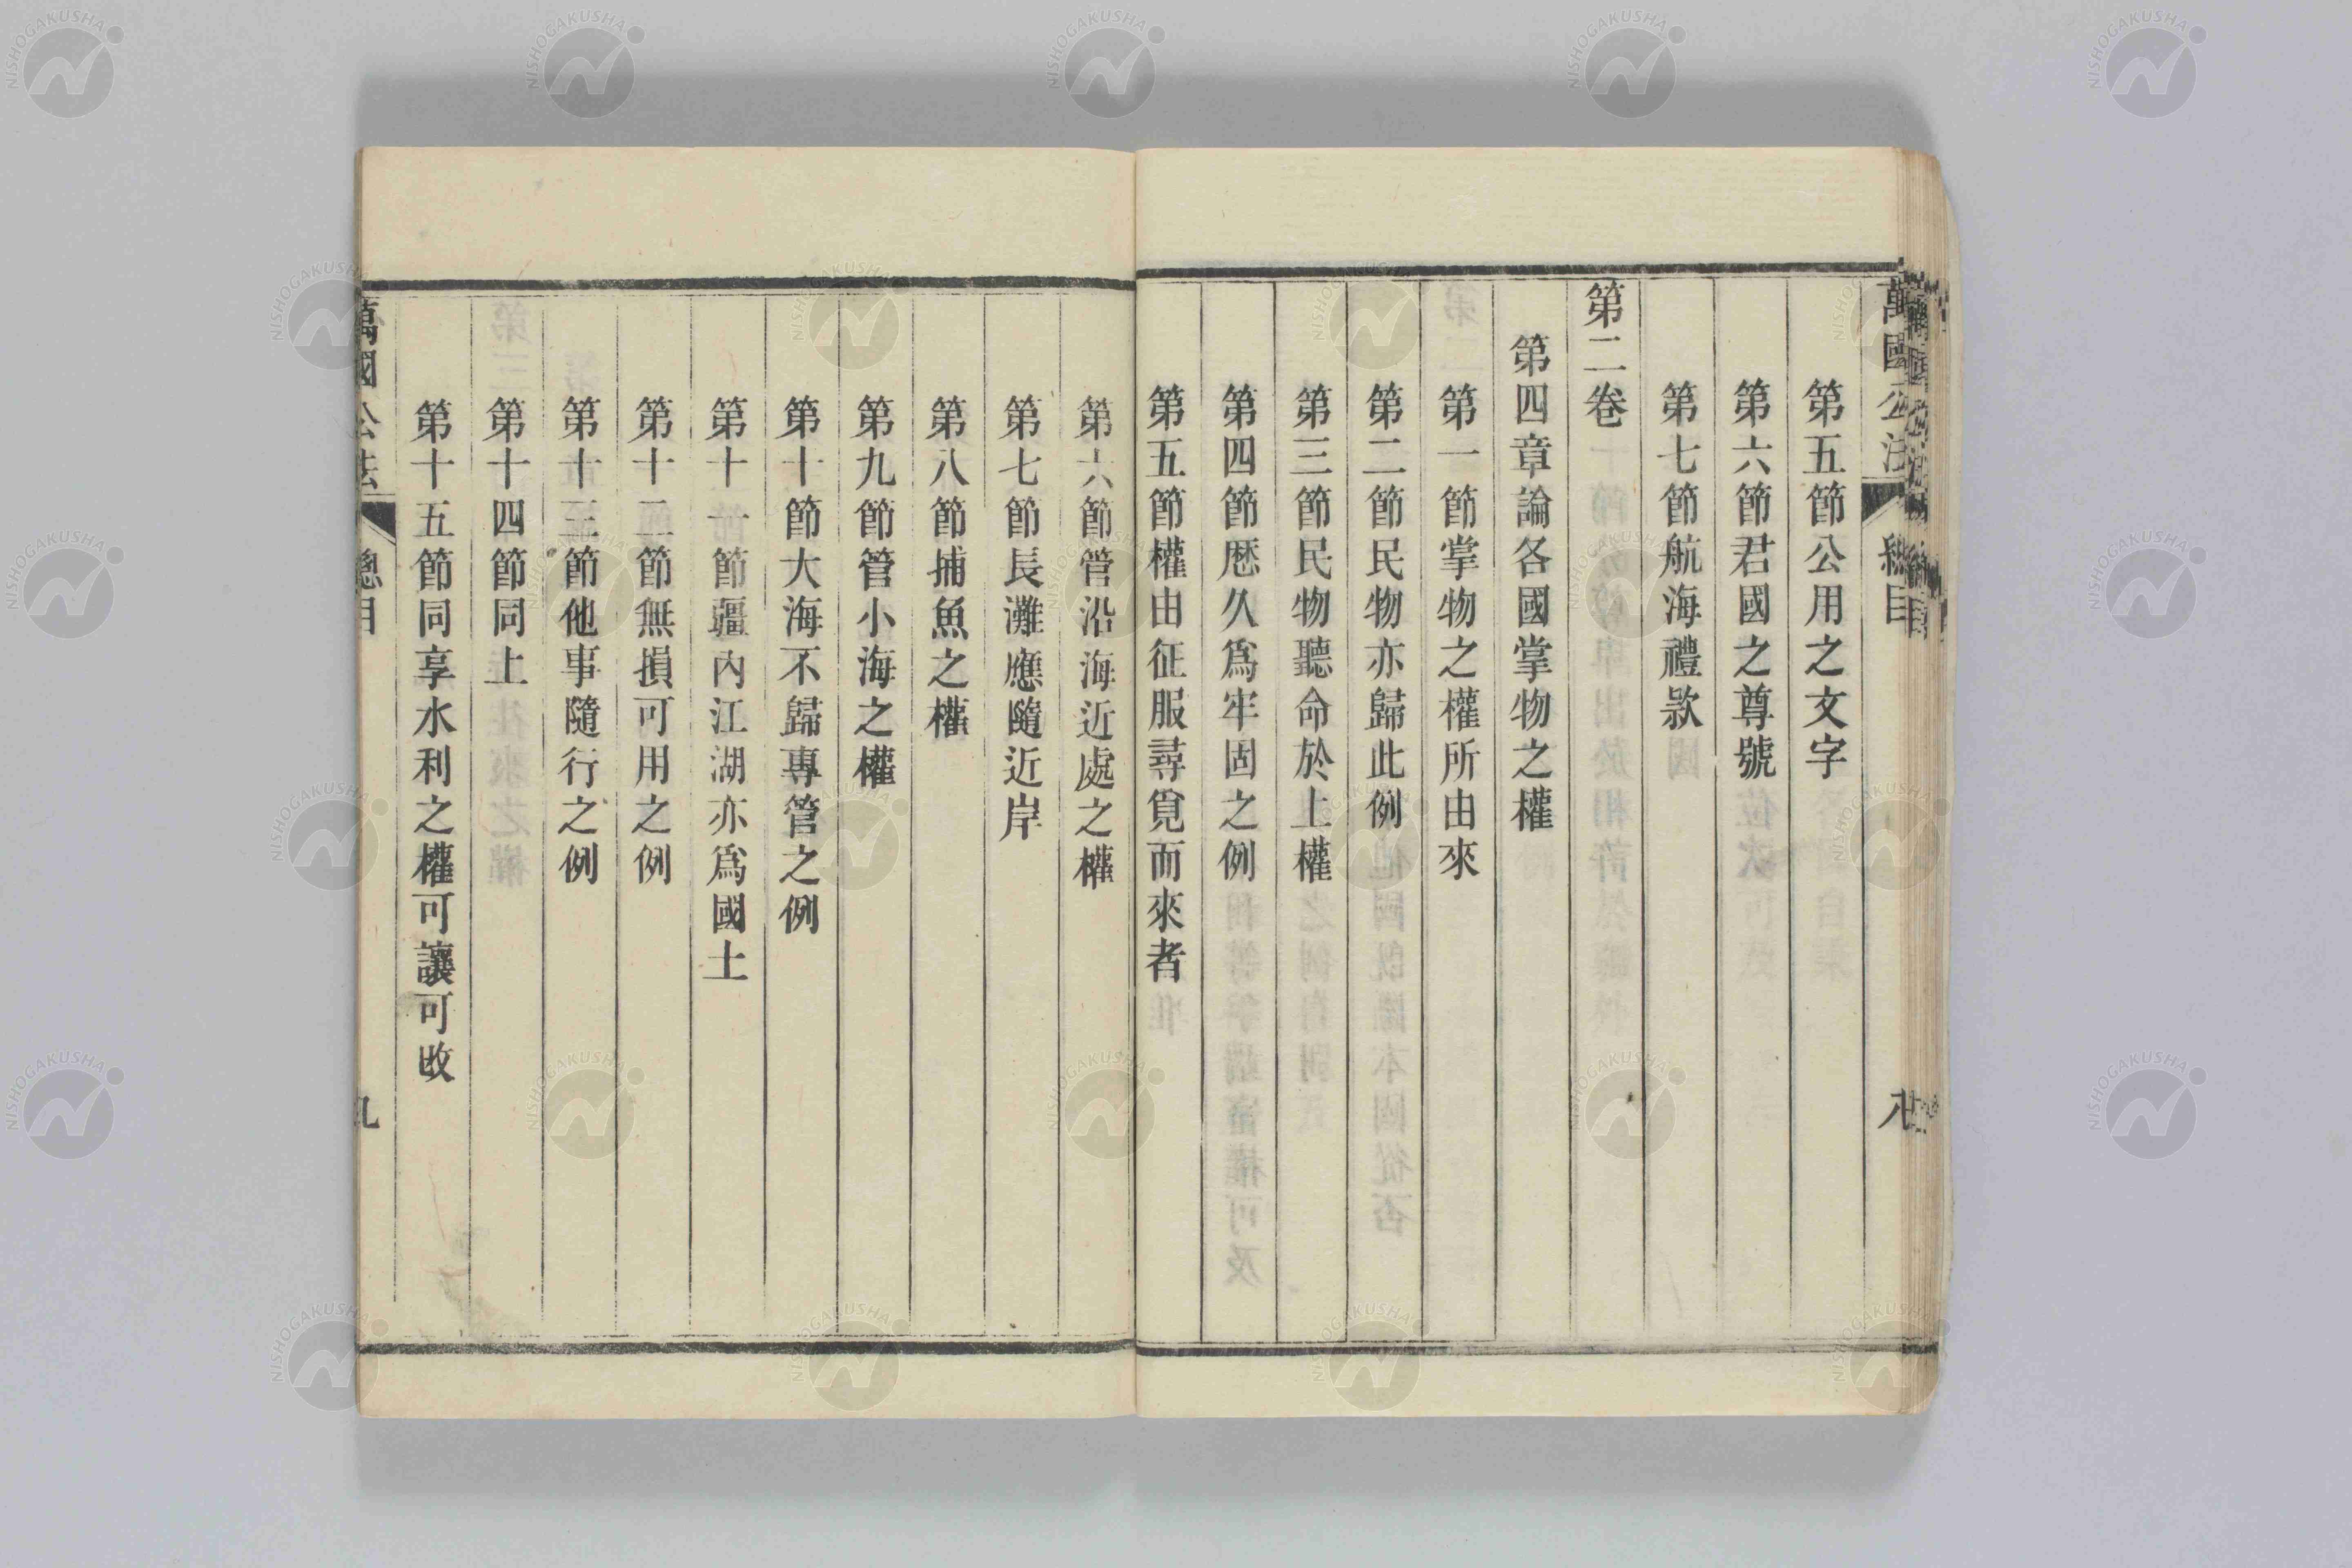 萬國公法 總目 八
第五節公用之文字
第六節君國之尊號
第七節航海禮款
第二卷
第四章論各國掌物之權
第一節掌物之權所由來
第二節民物亦歸此例
第三節民物聽命於上權
第四節厯久爲牢固之例
第五節權由征服尋覓而來者
第六節管沿海近處之權
第七節長灘應隨近岸
第八節捕魚之權
第九節管小海之權
第十節大海不歸專管之例
第十一節疆內江湖亦爲國土
第十二節無損可用之例
第十三節他事隨行之例
第十四節同上
第十五節同享水利之權可讓可改
萬國公法 總目 九
NISHOGAKUSHA